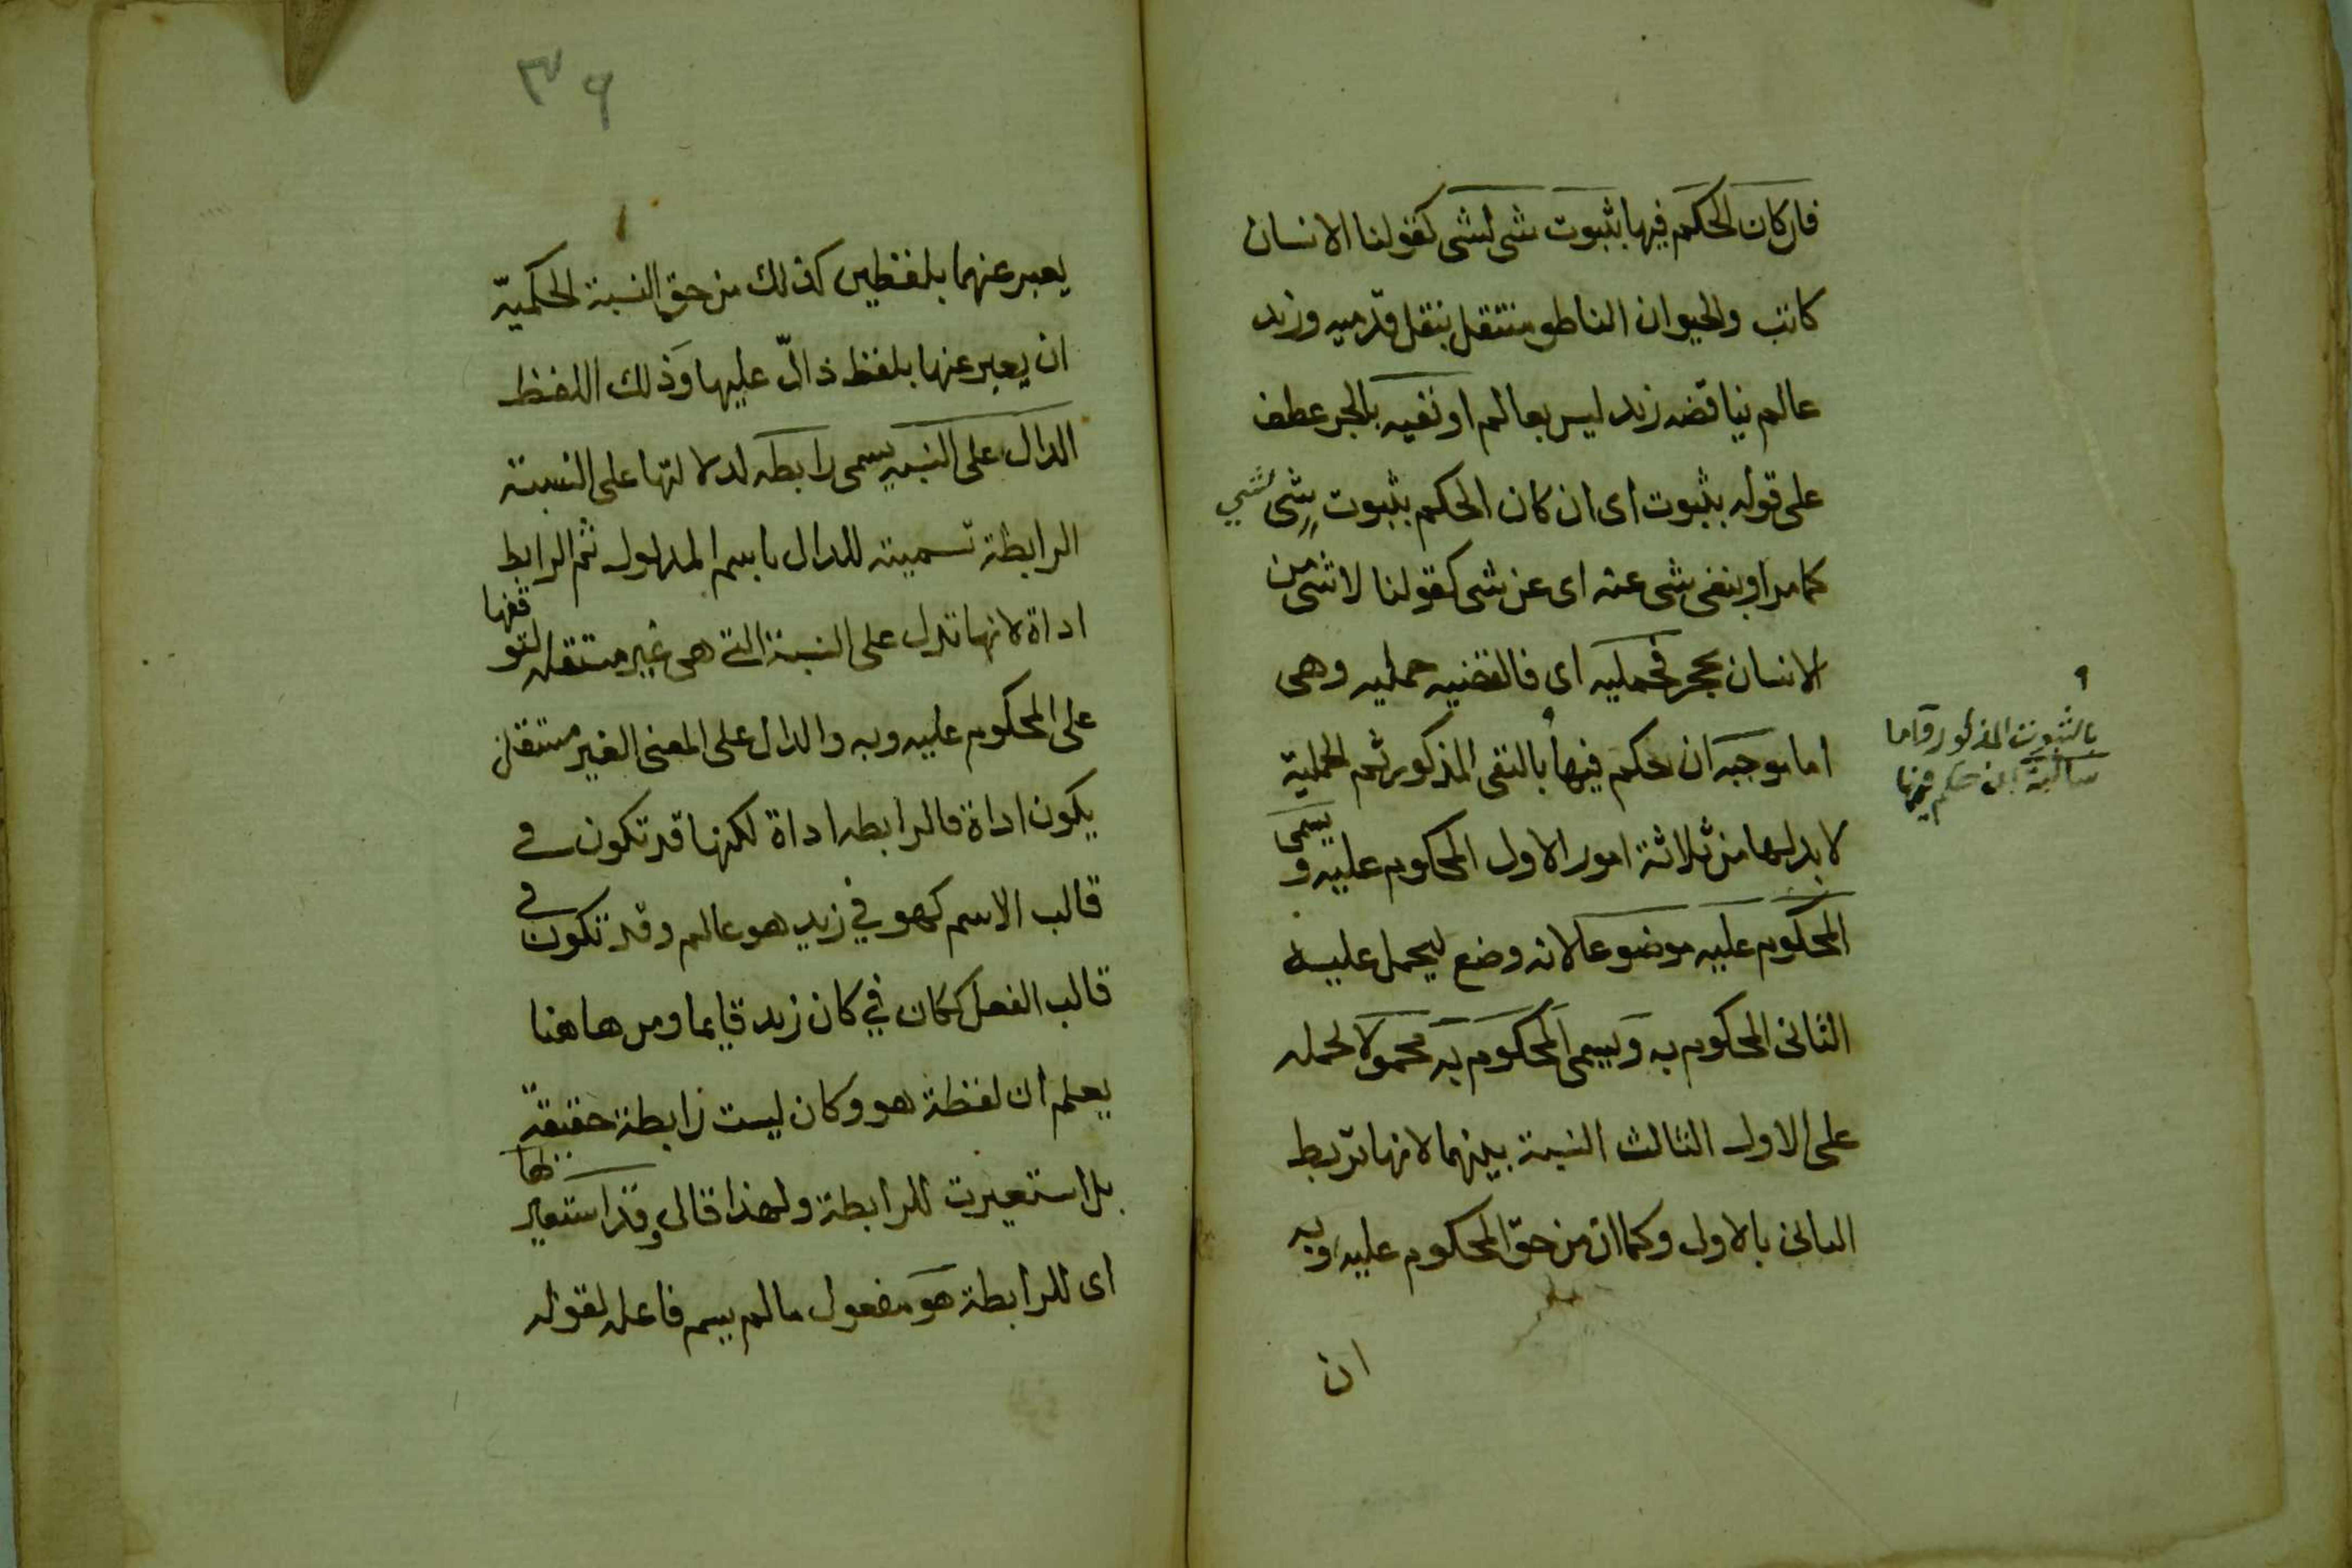 فان كان الحكم فيها بثبوت شى لشى كقولنا الانسان
كاتب والحيوان الناطق منتقل بنقل قدميه وزيد
عالم يناقضه زيد ليس بعالم او نفيه بالجر عطف
على قوله بثبوت اى ان كان الحكم بثبوت شى لشي
كما مر او بنفى شى عنه اى عن شى كقولنا لا شى من
الانسان بحجر فحمليه اى فالقضيه حمليه وهى
اما موجبه ان حكم فيها بالنفى المذكور ثم الحملية
بالثبوت المذكور واما
سالبة ان حكم فيها
لا بد لها من ثلاثة امور الاول المحكوم عليه و يسمى
المحكوم عليه موضوعا لانه وضع ليحمل عليه
الثانى المحكوم به ويسمى المحكوم به محمولا لحمله
على الاول الثالث النسبة بينهما لانها تربط
الثانى بالاول وكما ان من حق المحكوم عليه وبه
ان
٣٦
يعبر عنهما بلفظين كذلك من حق النسبة الحكميّه
ان يعبر عنها بلفظ دالّ عليها وذلك اللفظ
الدال على النسبه يسمى رابطه لدلالتها على النسبة
الرابطة تسمية للدال باسم المدلول ثم الرابط
اداة لانها تدل على النسبة التى هى غير مستقله لتو قفها
على المحكوم عليه وبه والدال على المعنى الغير مستقل
يكون اداة فالرابطه اداة لكنها قد تكون فى
قالب الاسم كهو في زيد هو عالم وقد تكون فى
قالب الفعل ككان في كان زيد قايما ومن هاهنا
يعلم ان لفظة هو وكان ليست رابطة حقيقة
بل استعيرت للرابطة ولهذا قال وقد استعير لها
اى للرابطة هو مفعول مالم يسم فاعله لقوله